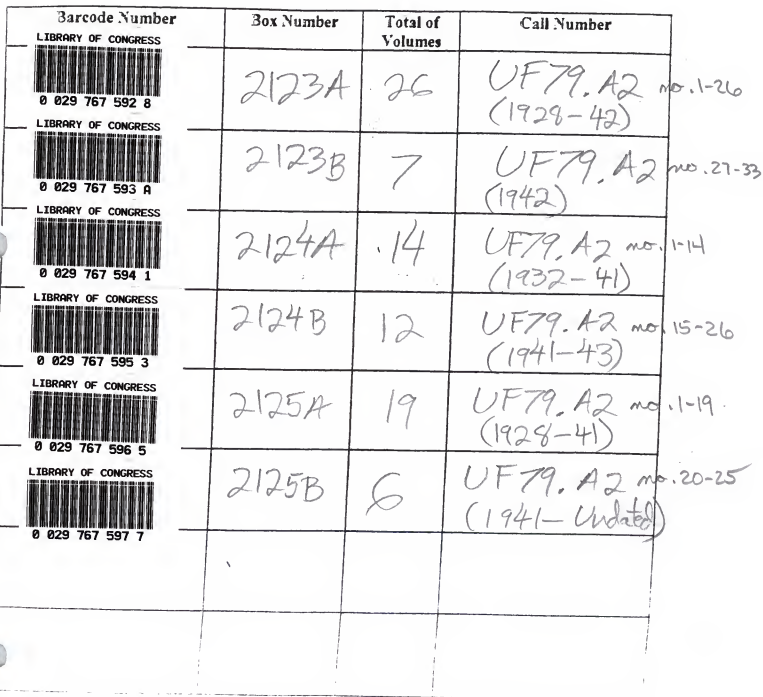 Barcode Number Box Number Total of Volumes Call Number
LIBRARY OF CONGRESS
0 029 767 592 8
2123A 26 UF79.A2 no.1-26
(1928-42)
LIBRARY OF CONGRESS
0 029 767 593 A
2123B 7 UF79.A2 no.27-33
(1942)
LIBRARY OF CONGRESS
0 029 767 594 1
2124A .14 UF79.A2 no.1-14
(1932-41)
LIBRARY OF CONGRESS
0 029 767 595 3
2124B 12 UF79.A2 no.15-26
(1941-43)
LIBRARY OF CONGRESS
0 029 767 596 5
2125A 19 UF79.A2 no.1-19.
(1928-41)
LIBRARY OF CONGRESS
0 029 767 597 7
2125B 6 UF79.A2 no.20-25
(1941-Undated)